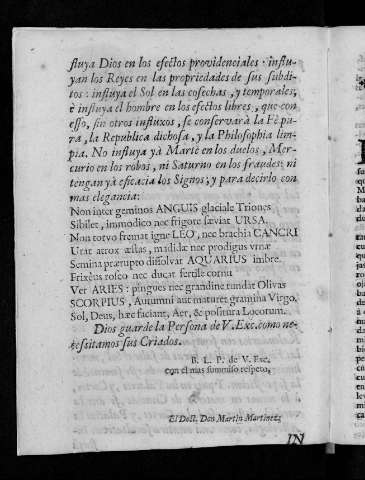 fluya Dios en los efectos providenciales: influ-
yan los Reyes en las propriedades de sus subdi-
tos: influya el Sol en las cosechas, y temporales;
è influya el hombre en los efectos libres, que con
esso, sin otros influxos, se conservarà la Fè pu-
ra, la Republica dichosa, y la Philosophia lim-
pia. No influya yà Marte en los duelos, Mer-
curio en los robos, ni Saturno en los fraudes: ni
tengan yà eficacia los Signos; y para decirlo con
mas elegancia:
Non inter geminos ANGUIS glaciale Triones
Sibilet, immodico nec frigore sæviat URSA.
Non torvo fremat igne LEO, nec brachia CANCRI
Urat atrox æstas, madidæ nec prodigus urnæ
Semina prærupto dissolvat AQUARIUS imbre.
Frixèus roseo nec ducat fertile cornu
Ver ARIES: pingues nec grandine tundat Olivas
SCORPIUS, Autumni aut maturet gramina Virgo.
Sol, Deus, hæc faciant, Aer, & positura Locorum.
Dios guarde la Persona de V. Exc. como ne-
cessitamos sus Criados.
B. L. P. de V. Exc.
con el mas summiso respeto,
El Doct. Don Martin Martinez.
IN